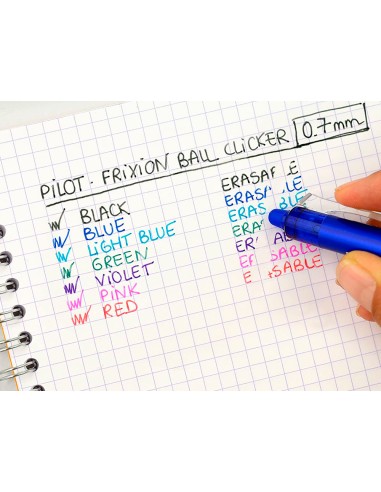 PILOT - FRIXION BALL CLICKER 0.7mm
BLACK
BLUE
LIGHT BLUE
GREEN
VIOLET
PINK
RED
ERASA E
ERASA LE
ERAS BLE
ERA
ER A
E SABLE
E SABLE